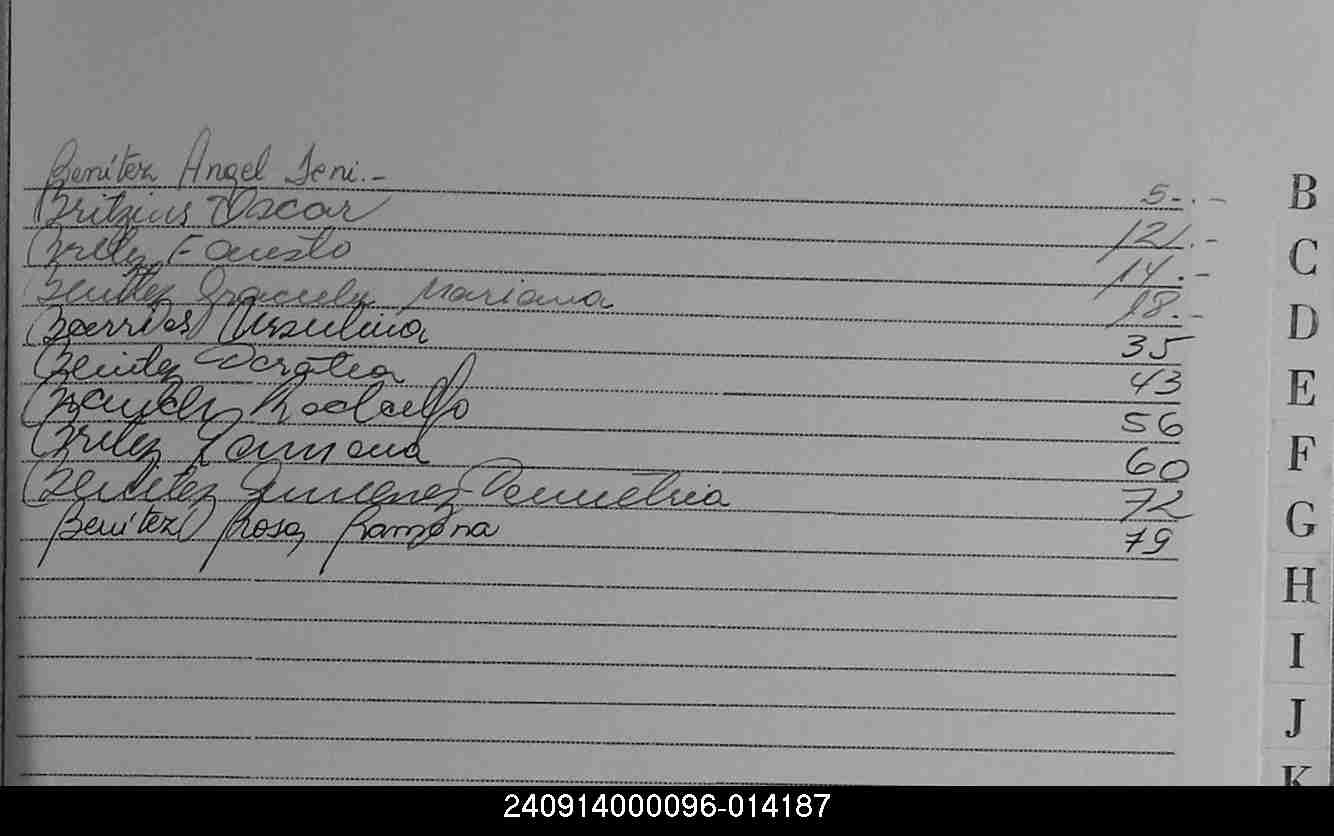 Benítez Angel Jeni.- 5-.-
Britzius Oscar 12.-
Britez Fausto 14.-
Benitez Graciela Mariana 18.-
Barrios Ursulina 35
Benitez Dorotea 43
Rodolfo 56
Britez Ramona 60
Benitez Gimenez Demetria 72
Benítez Rosa Ramona 79
B
C
D
E
F
G
H
I
J
K
240914000096-014187